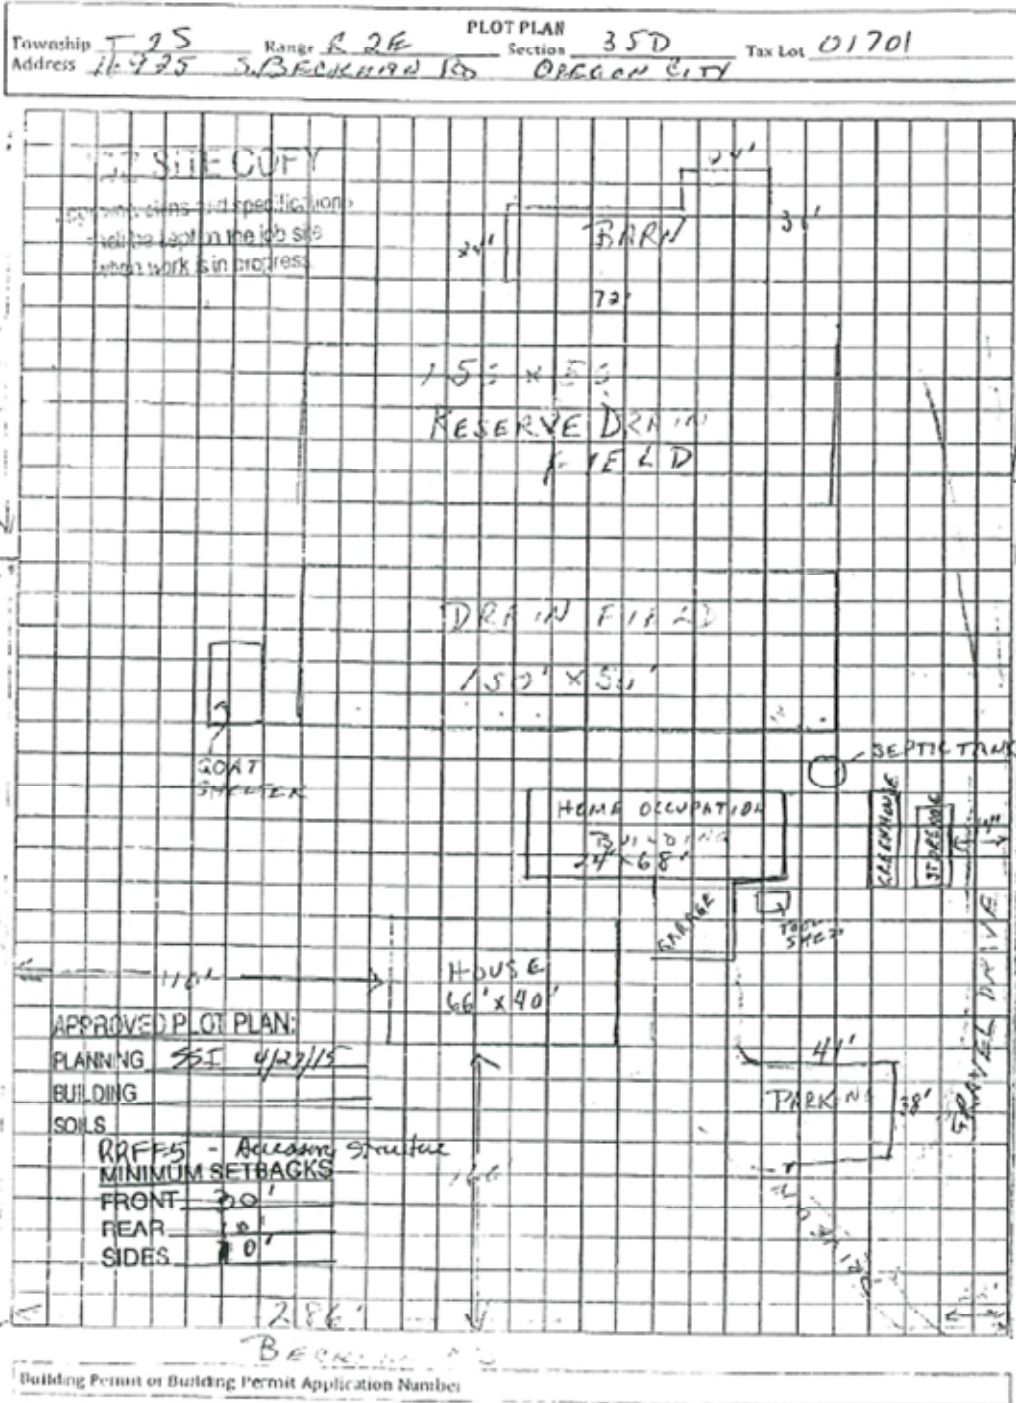 PLOT PLAN
Township T 2S Range R 2E Section 35D Tax Lot 01701
Address S. BECKMAN RD OREGON CITY
SITE COPY
and specifications
shall be kept on the job site
when work is in progress
24'
BARN
36'
72'
RESERVE DRAIN
FIELD
DRAIN FIELD
150' x 50'
GOAT
SHELTER
SEPTIC TANK
HOME OCCUPATION
BUILDING
24' x 68'
GREENHOUSE
STORAGE
GARAGE
TOOL
SHED
GRAVEL DRIVE
110'
HOUSE
66' x 40'
APPROVED PLOT PLAN:
PLANNING SSI 4/27/15
BUILDING
SOILS
RRFF5 - Accessory Structure
MINIMUM SETBACKS
FRONT 30'
REAR 10'
SIDES 10'
41'
PARKING
38'
166'
286'
Building Permit or Building Permit Application Number